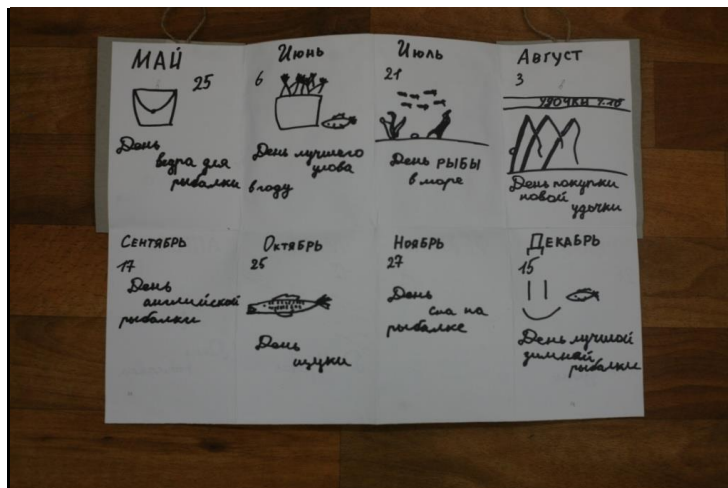 МАЙ
25
День
ведра для
рыбалки
Июнь
6
День лучшего
улова
в году
Июль
21
День РЫБЫ
в море
Август
3
УДОЧКИ
День покупки
новой
удочки
СЕНТЯБРЬ
17
День
английской
рыбалки
ОКТЯБРЬ
25
День
щуки
НОЯБРЬ
27
День
сна на
рыбалке
ДЕКАБРЬ
15
День лучшой
зимней
рыбалки